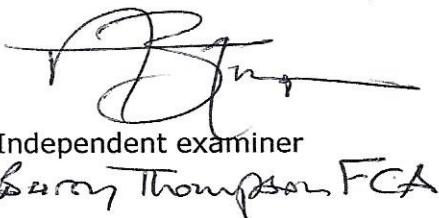 Independent examiner
Barry Thompson FCA